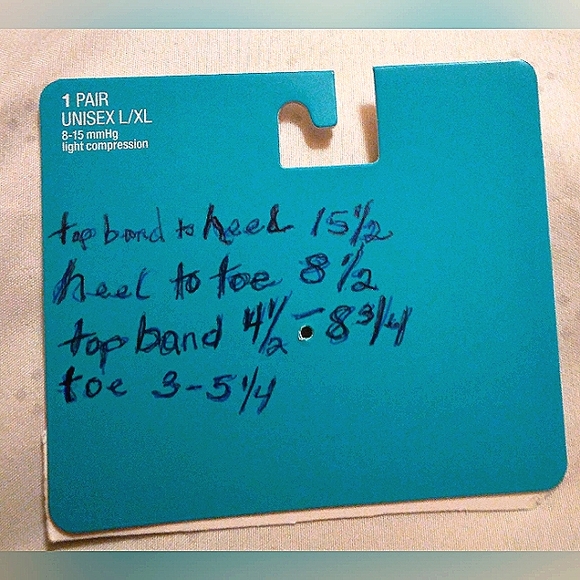 1 PAIR
UNISEX L/XL
8-15 mmHg
light compression
top band to heel 15 1/2
heel to toe 8 1/2
top band 4 1/2 - 8 3/4
toe 3 - 5 1/4